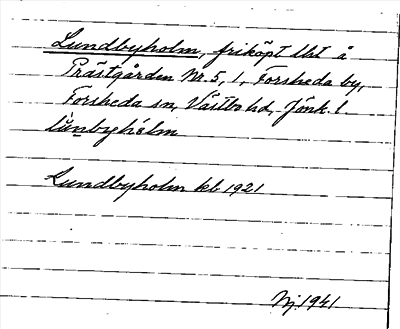 Lundbyholm, friköpt lht å
Prästgården Nr. 5, 1, Forsheda by,
Forsheda sn, Västbo hd, Jönk. l
lùnbyhólm
Lundbyholm kb 1921
Nj. 1941